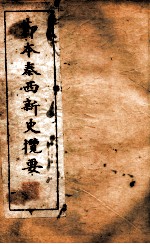 節本泰西新史攬要